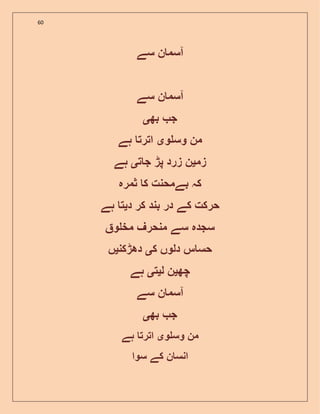 60
آسمان سے
آسمان سے
جب بھی
من وسلوی اترتا ہے
زمین زرد پڑ جاتی ہے
کہ بےمحنت کا ثمرہ
حرکت کے در بند کر دیتا ہے
سجدہ سے منحرف مخلوق
حساس دلوں کی دھڑکنیں
چھین لیتی ہے
آسمان سے
جب بھی
من وسلوی اترتا ہے
انسان کے سوا